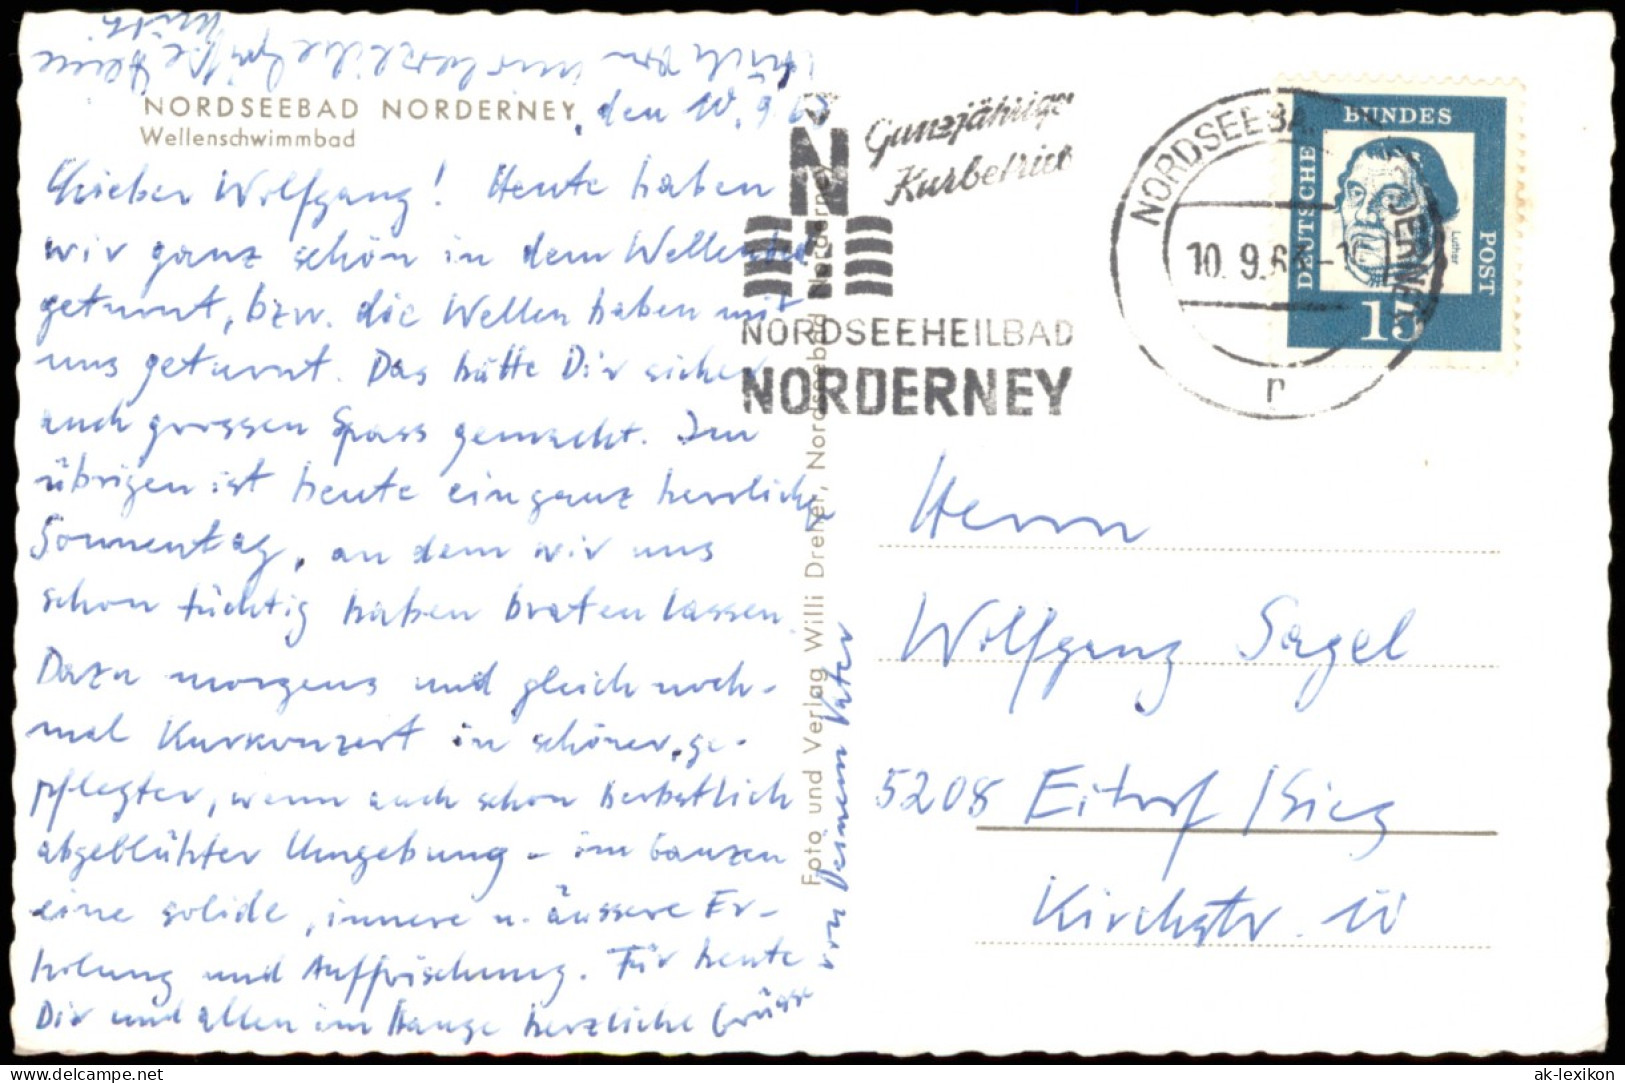 NORDSEEBAD NORDERNEY, den 10.9.63
Wellenschwimmbad
Lieber Wolfgang! Heute haben
wir ganz schön in dem Wellenbad
geturnt, bzw. die Wellen haben mit
uns geturnt. Das hätte Dir sicher
auch grossen Spass gemacht. Im
übrigen ist heute ein ganz herrlicher
Sonnentag, an dem wir uns
schon tüchtig haben braten lassen.
Dazu morgens und gleich noch-
mal Kurkonzert in schöner, ge-
pflegter, wenn auch schon herbstlich
abgeblühter Umgebung – im Ganzen
eine solide, innere u. äussere Er-
holung und Auffrischung. Für heute
Dir und allen im Hause herzliche Grüsse
von Deinem Vater
Auch von mir herzliche Grüße Deine
Mutti
Foto und Verlag Willi Dreher, Nordseebad Norderney
Ganzjähriger
Kurbetrieb
N
NORDSEEHEILBAD
NORDERNEY
NORDSEEBAD NORDERNEY
10.9.63
r
DEUTSCHE BUNDESPOST
Luther
15
Herrn
Wolfgang Sagel
5208 Eitorf/Sieg
Kirchstr. 10
delcampe.net
ak-lexikon